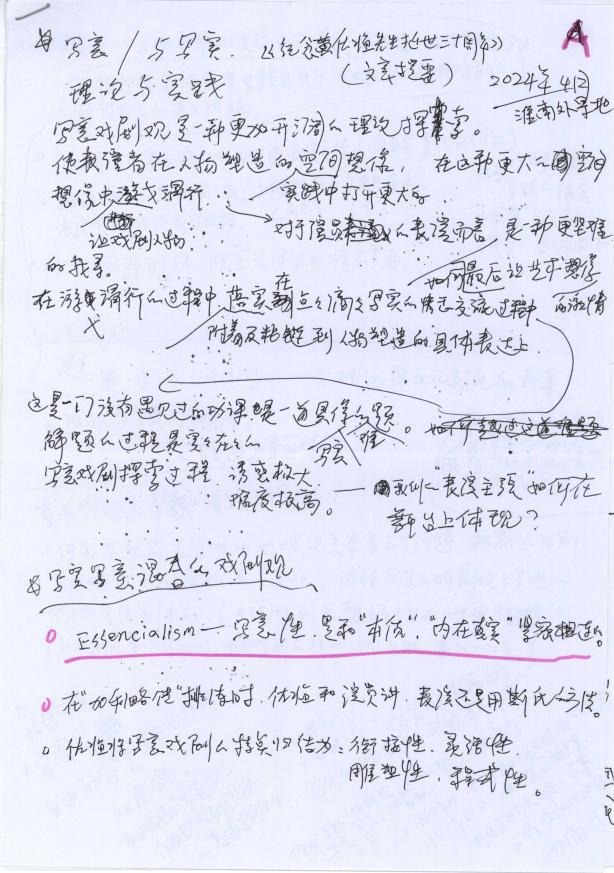 写意/与写实 《纪念黄佐临先生逝世三十周年》
A
理论与实践 (文章提要) 2024年4月
淮南外景地
写意戏剧观是一种更加开阔的理论探索。
使表演者在人物塑造的空间想像 在这种更大的空间
想像中游戏滑行 实践中打开更大的
让戏剧人物
对于演员的表演而言,是一种更坚难
的找寻。
如何最后让艺术
在游戏滑行的过程中 落实在点点滴滴写实的情志交流过程中
附着及粘连到人物塑造的具体表达上
这是一门没有遇见过的功课 是一道具像的题
解题的过程是实实在在的 写意 难
写意戏剧探索过程 诱惑极大
难度极高。——我们的“表演主张”如何在
舞台上体现?
写实写意混合的戏剧观
Essencialism— 写意性,是和“本位”,“内在真实”紧密相连的。
在“加利略传”排练时,佐临和演员讲,表演还是用斯氏的方法。
佐临将写意戏剧的特质归结为:衔接性,灵活性,
雕塑性,程式性。